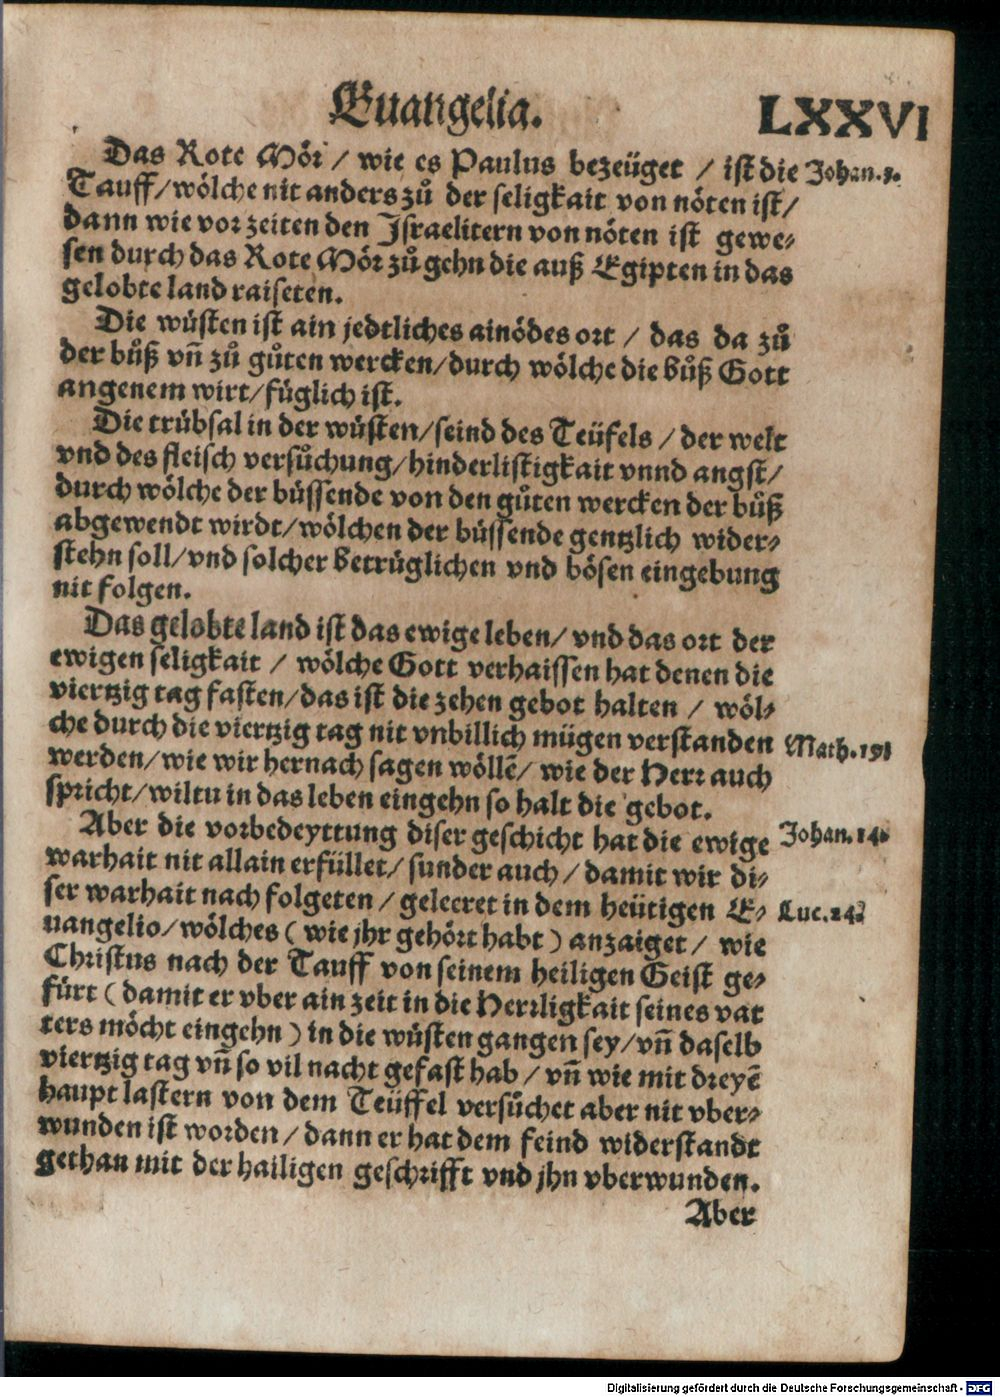 Euangelia. LXXVI
Das Rote Mör / wie es Paulus bezeüget / ist die Johan.3.
Tauff/wölche nit anders zů der seligkait von nöten ist/
dann wie vor zeiten den Israelitern von nöten ist gewe-
sen durch das Rote Mör zů gehn die auß Egipten in das
gelobte land raiseten.
Die wüsten ist ain jedtliches ainödes ort / das da zů
der bůß vñ zů gůten wercken/durch wölche die bůß Gott
angenem wirt/füglich ist.
Die trübsal in der wüsten/seind des Teüfels / der welt
vnd des fleisch versůchung/hinderlistigkait vnnd angst/
durch wölche der büssende von den gůten wercken der bůß
abgewendt wirdt/wölchen der büssende gentzlich wider-
stehn soll/vnd solcher betrüglichen vnd bösen eingebung
nit folgen.
Das gelobte land ist das ewige leben/ vnd das ort der
ewigen seligkait / wölche Gott verhaissen hat denen die
viertzig tag fasten/das ist die zehen gebot halten / wöl-
che durch die viertzig tag nit vnbillich mügen verstanden
werden/wie wir hernach sagen wöllē/ wie der Herr auch Math.19
spricht/wiltu in das leben eingehn so halt die gebot.
Aber die vorbedeyttung diser geschicht hat die ewige Johan.14.
warhait nit allain erfüllet/ sunder auch / damit wir di-
ser warhait nach folgeten / geleeret in dem heütigen E- Luc.24.
uangelio/wölches ( wie jhr gehört habt ) anzaiget / wie
Christus nach der Tauff von seinem heiligen Geist ge-
fürt ( damit er vber ain zeit in die Herrligkait seines vat
ters möcht eingehn ) in die wüsten gangen sey/vñ daselb
viertzig tag vñ so vil nacht gefast hab / vñ wie mit dreyē
haupt lastern von dem Teüffel versůchet aber nit vber-
wunden ist worden / dann er hat dem feind widerstandt
gethan mit der hailigen geschrifft vnd jhn vberwunden.
Aber
Digitalisierung gefördert durch die Deutsche Forschungsgemeinschaft - DFG